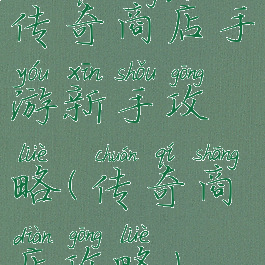 传奇商店手
yóu xīn shǒu gōng
游新手攻
lüè chuán qí shāng
略(传奇商
diàn gōng lüè
店攻略)